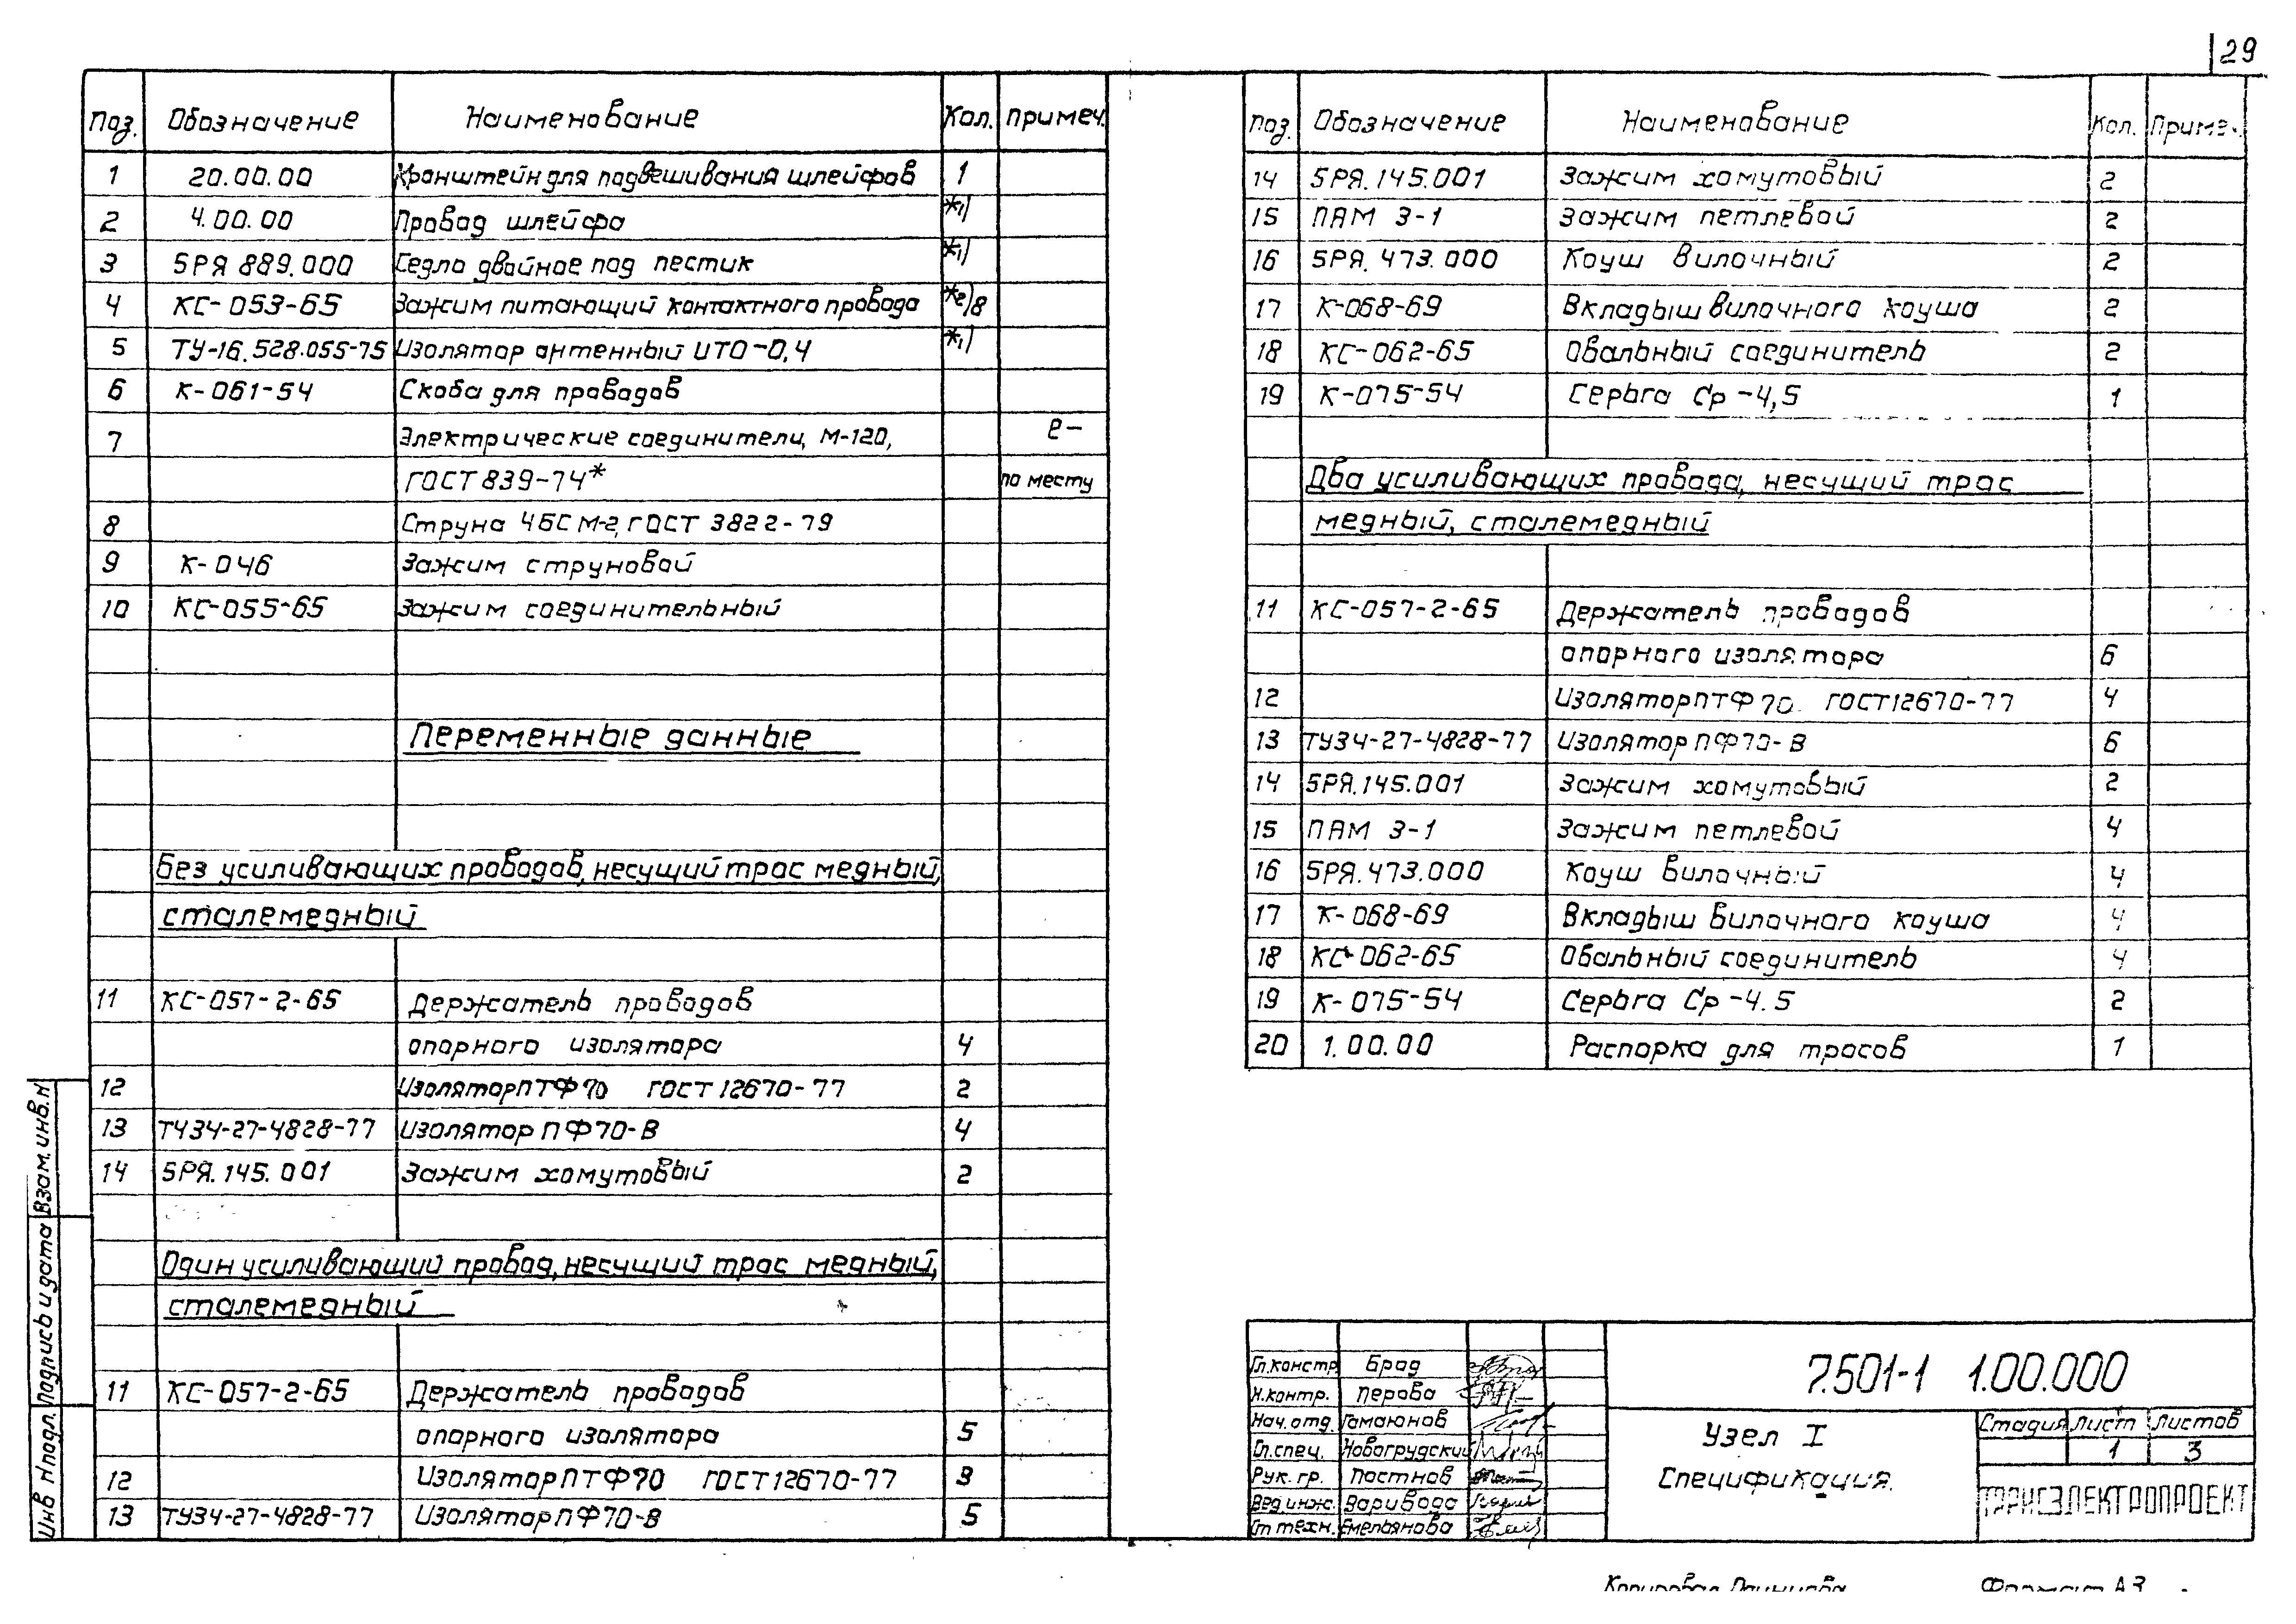 29
Поз. Обозначение Наименование Кол. Примеч.
1 20.00.00 Кронштейн для подвешивания шлейфов 1
2 4.00.00 Провод шлейфа *1)
3 5РЯ 889.000 Седло двойное под пестик *1)
4 КС-053-65 Зажим питающий контактного провода *2)8
5 ТУ-16.528.055-75 Изолятор антенный ИТО-0,4 *1)
6 К-061-54 Скоба для проводов
7 Электрические соединители, М-120, ℓ-
ГОСТ 839-74* по месту
8 Струна 4БСМ-2, ГОСТ 3822-79
9 К-046 Зажим струновой
10 КС-055-65 Зажим соединительный
Переменные данные
Без усиливающих проводов, несущий трос медный,
сталемедный
11 КС-057-2-65 Держатель проводов
опорного изолятора 4
12 Изолятор ПТФ70 ГОСТ 12670-77 2
13 ТУ34-27-4828-77 Изолятор ПФ70-В 4
14 5РЯ.145.001 Зажим хомутовый 2
Один усиливающий провод, несущий трос медный,
сталемедный
11 КС-057-2-65 Держатель проводов
опорного изолятора 5
12 Изолятор ПТФ70 ГОСТ 12670-77 3
13 ТУ34-27-4828-77 Изолятор ПФ70-В 5
Поз. Обозначение Наименование Кол. Примеч.
14 5РЯ.145.001 Зажим хомутовый 2
15 ПАМ 3-1 Зажим петлевой 2
16 5РЯ.473.000 Коуш вилочный 2
17 К-068-69 Вкладыш вилочного коуша 2
18 КС-062-65 Овальный соединитель 2
19 К-075-54 Серьга Ср-4,5 1
Два усиливающих провода, несущий трос
медный, сталемедный
11 КС-057-2-65 Держатель проводов
опорного изолятора 6
12 Изолятор ПТФ 70 ГОСТ 12670-77 4
13 ТУ34-27-4828-77 Изолятор ПФ70-В 6
14 5РЯ.145.001 Зажим хомутовый 2
15 ПАМ 3-1 Зажим петлевой 4
16 5РЯ.473.000 Коуш вилочный 4
17 К-068-69 Вкладыш вилочного коуша 4
18 КС-062-65 Овальный соединитель 4
19 К-075-54 Серьга Ср-4.5 2
20 1.00.00 Распорка для тросов 1
Инв N подл. Подпись и дата Взам. инв. N
Гл.констр. Брад
Н.контр. Перова
Нач.отд. Гамаюнов
Гл.спец. Новогрудский
Рук. гр. Постнов
Вед.инж. Варивода
Ст техн. Емельянова
7.501-1 1.00.000
Узел I
Спецификация.
Стадия Лист Листов
1 3
ТРАНСЭЛЕКТРОПРОЕКТ
Копировал Формат А3